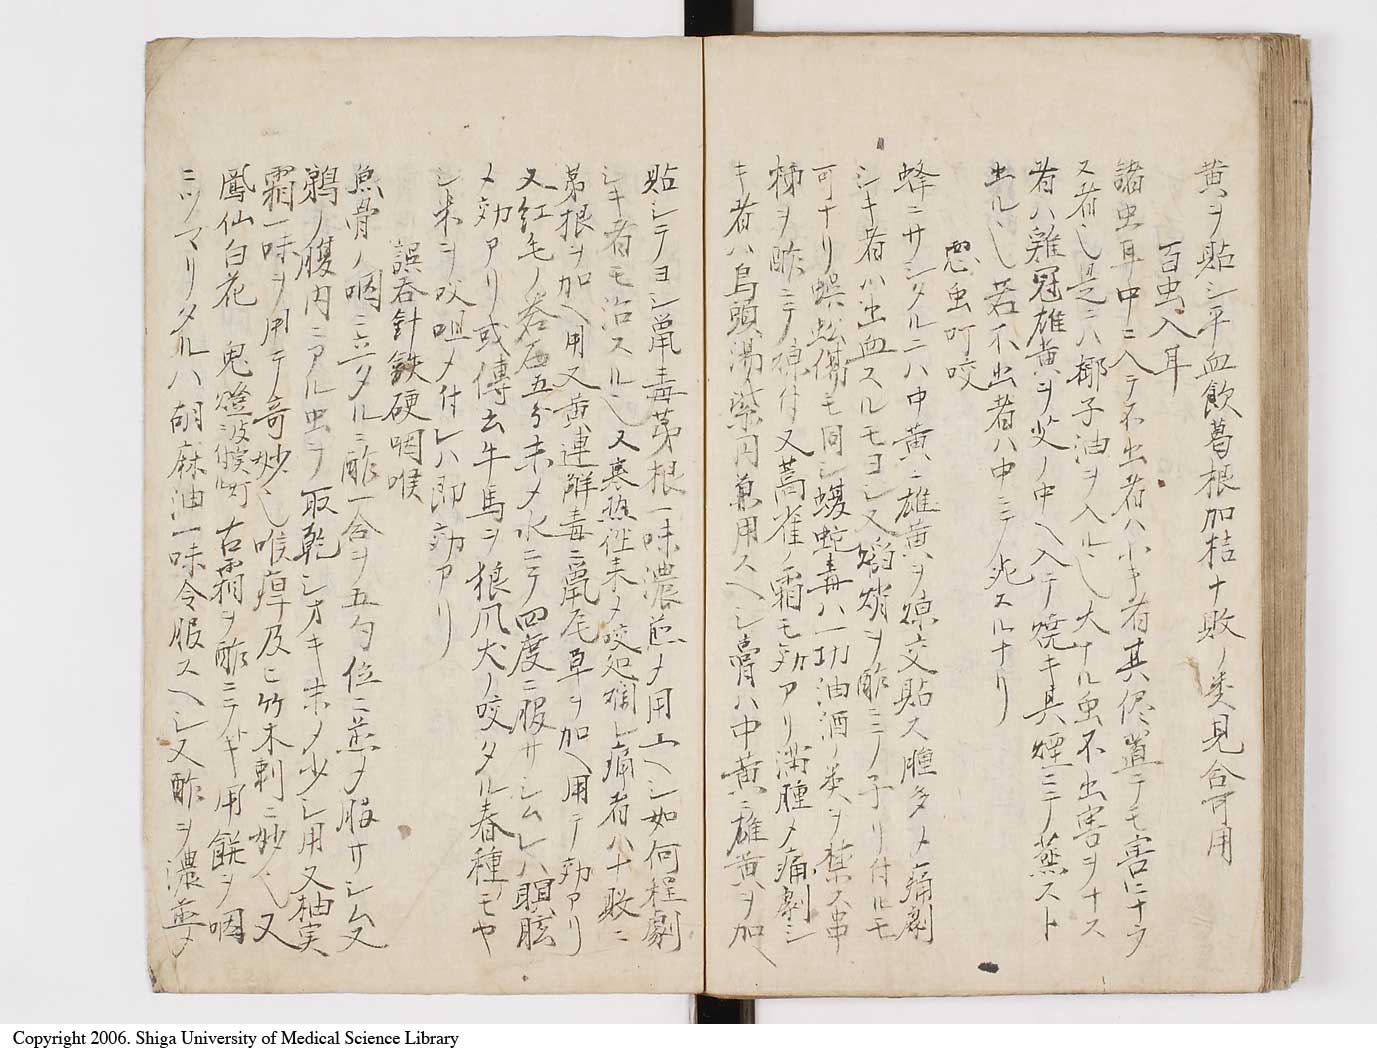 黄ヲ貼シ平血飲葛根加桔十敗ノ类見合可用
百虫入耳
諸虫耳中ニ入テ不出者ハ小キ者其侭置テモ害ニナラ
ヌ者也是ニハ椰子油ヲ入ル也大ナル虫不出害ヲナス
者ハ雞冠雄黄ヲ火ノ中ヘ入テ焼キ其煙ニテ蒸スト
出ル也若不出者ハ中ニテ死スルナリ
悪虫叮咬
蜂ニサシタルニハ中黄ニ雄黄ヲ煉交貼ス腫多メ痛劇
シキ者ハ出血スルモヨシ又蛞蝓ヲ酢ニテ子リ付ルモ
可ナリ蜈蚣傷モ同シ蝮蛇毒ハ一切油酒ノ类ヲ禁ス串
柿ヲ酢ニテ傅付又蒿雀ノ霜モ効アリ満腫メ痛劇シ
キ者ハ烏頭湯紫円兼用スヘシ膏ハ中黄ニ雄黄ヲ加ヘ
貼シテヨシ鼠毒茅根一味濃煎メ用ユヘシ如何程劇
シキ者モ治スル也又寒熱徃来メ咬処爛レ痛者ハ十敗ニ
茅根ヲ加ヘ用又黄連解毒ニ鼠尾草ヲ加ヘ用テ効アリ
又紅毛ノ岩石五分末メ水ニテ四度ニ服サシムレハ瞑眩
メ効アリ或傳云牛馬ヲ狼爪犬ノ咬タル春種モヤ
シ米ヲ㕮咀メ付レハ即効アリ
誤呑針鉄硬咽喉
魚骨ノ咽ニ立タルニ酢一合ヲ五勺位ニ煎メ服サシム又
鵜ノ腹内ニアル虫ヲ取乾シオキ末メ少シ用又柚実
霜一味ヲ用テ奇妙也喉痺及ヒ竹木刺ニ妙也又
鳳仙白花 鬼燈 右霜ヲ酢ニテトキ用餅ヲ咽
ニツマリタルハ胡麻油一味令服スヘシ又酢ヲ濃煎メ
Copyright 2006. Shiga University of Medical Science Library